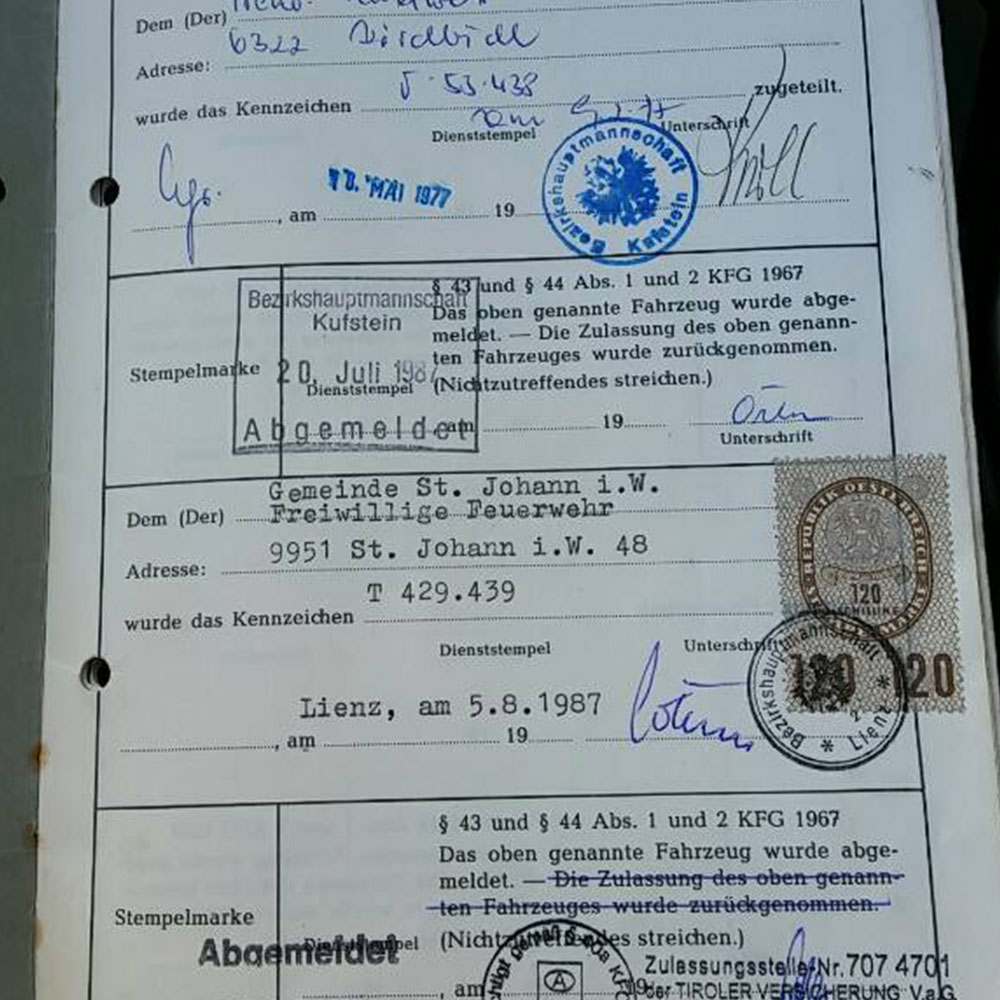 Dem (Der)
6322
Adresse:
wurde das Kennzeichen 53.438 zugeteilt.
Dienststempel Unterschrift
Bezirkshauptmannschaft Kufstein
, am MAI 1977 19
§ 43 und § 44 Abs. 1 und 2 KFG 1967
Das oben genannte Fahrzeug wurde abge-
meldet. — Die Zulassung des oben genann-
ten Fahrzeuges wurde zurückgenommen.
(Nichtzutreffendes streichen.)
Bezirkshauptmannschaft
Kufstein
20. Juli 198
Abgemeldet
Stempelmarke
Dienststempel
, am 19
Unterschrift
Gemeinde St. Johann i.W.
Dem (Der) Freiwillige Feuerwehr
9951 St. Johann i.W. 48
Adresse:
T 429.439
wurde das Kennzeichen
REPUBLIK OESTERREICH
120
SCHILLING
120 120
Dienststempel Unterschrift
Bezirkshauptmannschaft * Lienz *
Lienz, am 5.8.1987
, am 19
§ 43 und § 44 Abs. 1 und 2 KFG 1967
Das oben genannte Fahrzeug wurde abge-
meldet. — Die Zulassung des oben genann-
ten Fahrzeuges wurde zurückgenommen.
Stempelmarke
(Nichtzutreffendes streichen.)
Abgemeldet
Dienststempel
Zulassungsstelle Nr. 707 4701
, am 19
der TIROLER VERSICHERUNG V.a.G.